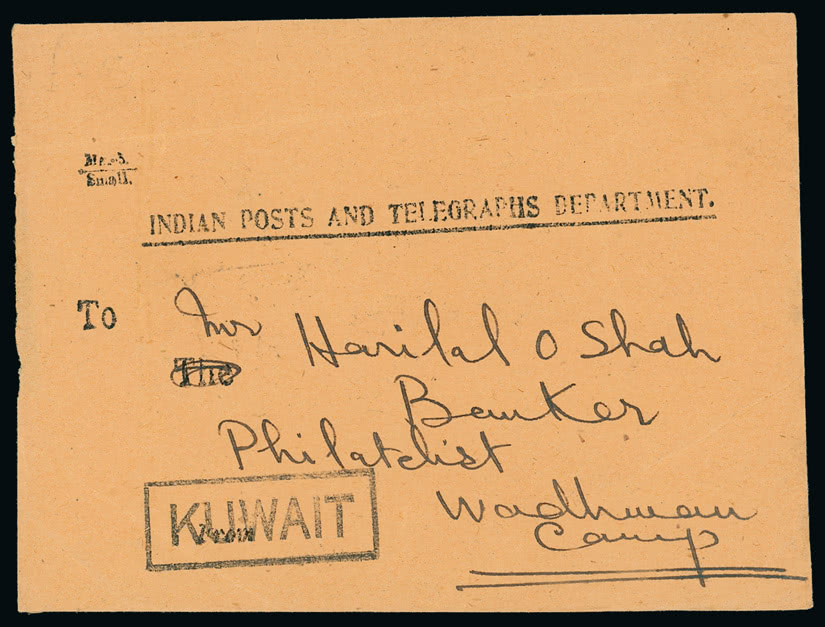 No.-5.
Small.
INDIAN POSTS AND TELEGRAPHS DEPARTMENT.
To
Mr Harilal O Shah
The
Banker
Philatelist
KUWAIT
From
Wadhwan
Camp